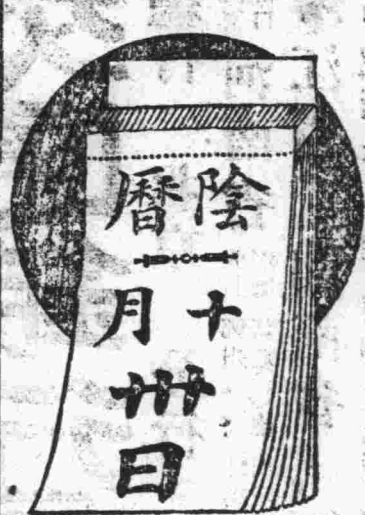 陰曆
十月
卅日